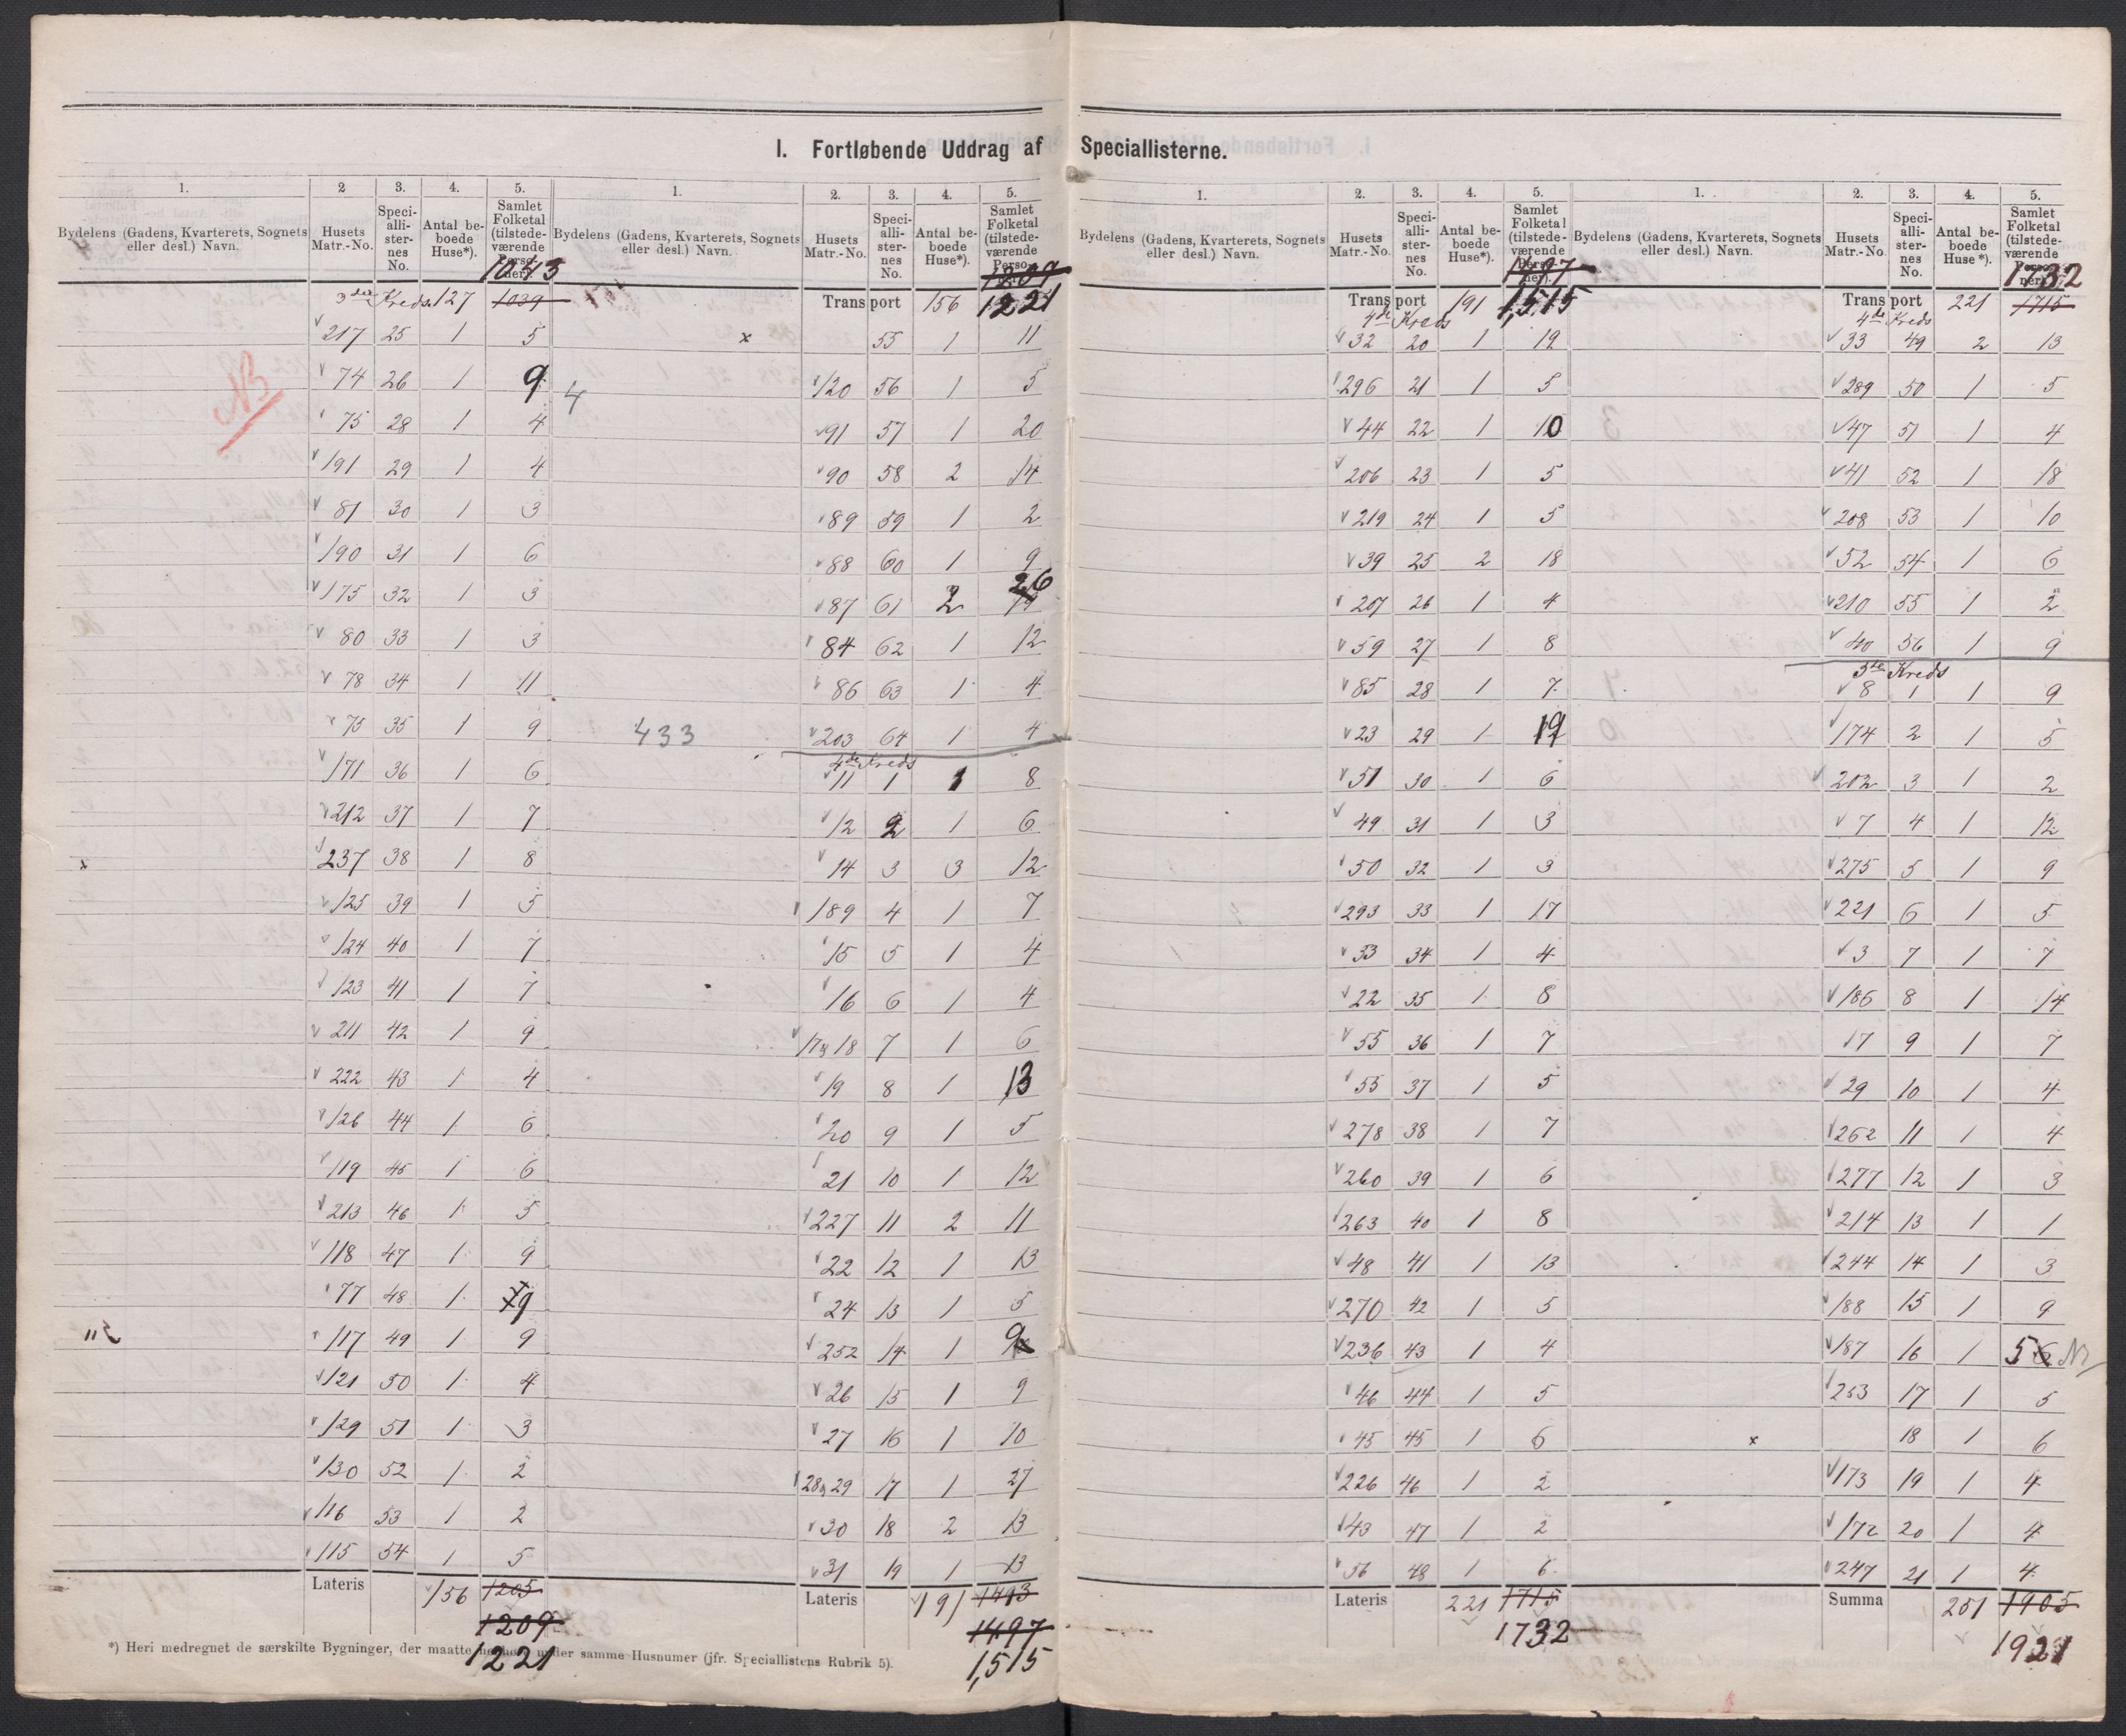 I. Fortløbende Uddrag af Speciallisterne.
1. 2 3. 4. 5.
Bydelens (Gadens, Kvarterets, Sognets eller desl.) Navn. Husets Matr.-No. Speciallisternes No. Antal beboede Huse*). Samlet Folketal (tilstedeværende Personer).
1043
3die Kreds 127 1039
217 25 1 5
NB 74 26 1 9
75 28 1 4
191 29 1 4
81 30 1 3
190 31 1 6
175 32 1 3
80 33 1 3
78 34 1 11
75 35 1 9
171 36 1 6
212 37 1 7
x 237 38 1 8
125 39 1 5
124 40 1 7
123 41 1 7
211 42 1 9
222 43 1 4
126 44 1 6
119 45 1 6
213 46 1 5
118 47 1 9
77 48 1 9
117 49 1 9
121 50 1 4
129 51 1 3
130 52 1 2
116 53 1 2
115 54 1 5
Lateris 156 1205
1209
1221
1. 2. 3. 4. 5.
Bydelens (Gadens, Kvarterets, Sognets eller desl.) Navn. Husets Matr.-No. Speciallisternes No. Antal beboede Huse*). Samlet Folketal (tilstedeværende Personer).
1209
Transport 156 1221
x 55 1 11
4 120 56 1 5
91 57 1 20
90 58 2 14
89 59 1 2
88 60 1 9
87 61 2 26
84 62 1 12
86 63 1 4
433 203 64 1 4
4de Kreds
11 1 1 8
12 2 1 6
14 3 3 12
189 4 1 7
15 5 1 4
16 6 1 4
17 og 18 7 1 6
19 8 1 13
20 9 1 5
21 10 1 12
227 11 2 11
22 12 1 13
24 13 1 5
252 14 1 9
26 15 1 9
27 16 1 10
28 og 29 17 1 27
30 18 2 13
31 19 1 13
Lateris 191 1493
1497
1,515
*) Heri medregnet de særskilte Bygninger, der maatte under samme Husnumer (jfr. Speciallistens Rubrik 5).
1. 2. 3. 4. 5.
Bydelens (Gadens, Kvarterets, Sognets eller desl.) Navn. Husets Matr.-No. Speciallisternes No. Antal beboede Huse*). Samlet Folketal (tilstedeværende Personer).
1497
Transport 191 1,515
4de Kreds
32 20 1 19
296 21 1 5
44 22 1 10
206 23 1 5
219 24 1 5
39 25 2 18
207 26 1 4
59 27 1 8
85 28 1 7
23 29 1 19
51 30 1 6
49 31 1 3
50 32 1 3
293 33 1 17
53 34 1 4
22 35 1 8
55 36 1 7
55 37 1 5
278 38 1 7
260 39 1 6
263 40 1 8
48 41 1 13
270 42 1 5
236 43 1 4
46 44 1 5
45 45 1 6
226 46 1 2
43 47 1 2
56 48 1 6
Lateris 221 1715
1732
1. 2. 3. 4. 5.
Bydelens (Gadens, Kvarterets, Sognets eller desl.) Navn. Husets Matr.-No. Speciallisternes No. Antal beboede Huse*). Samlet Folketal (tilstedeværende Personer).
1732
Transport 221 1715
4de Kreds
33 49 2 13
289 50 1 5
47 51 1 4
41 52 1 18
208 53 1 10
52 54 1 6
210 55 1 2
40 56 1 9
5te Kreds
8 1 1 9
174 2 1 5
202 3 1 2
7 4 1 12
275 5 1 9
221 6 1 5
3 7 1 7
186 8 1 14
17 9 1 7
29 10 1 4
262 11 1 4
277 12 1 3
214 13 1 1
244 14 1 3
188 15 1 9
187 16 1 5 6
253 17 1 5
x 18 1 6
173 19 1 4
172 20 1 4
247 21 1 4
Summa 251 1905
1921